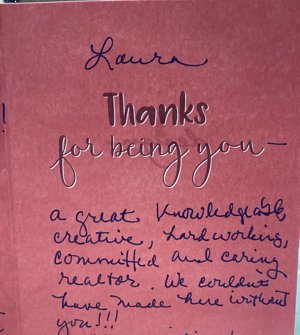 Laura
Thanks
for being you—
a great knowledgable,
creative, hardworking,
committed and caring
realtor. We couldn't
have made here without
you!!!